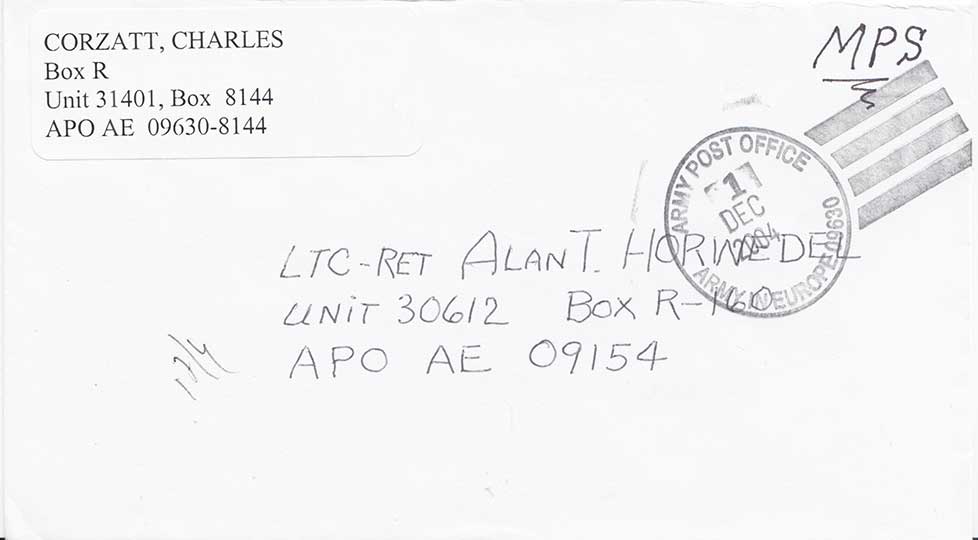 CORZATT, CHARLES
Box R
Unit 31401, Box 8144
APO AE 09630-8144
MPS
ARMY POST OFFICE
1
DEC
2004
ARMY IN EUROPE 09630
LTC-RET ALAN T. HORWEDEL
UNIT 30612 BOX R-160
APO AE 09154